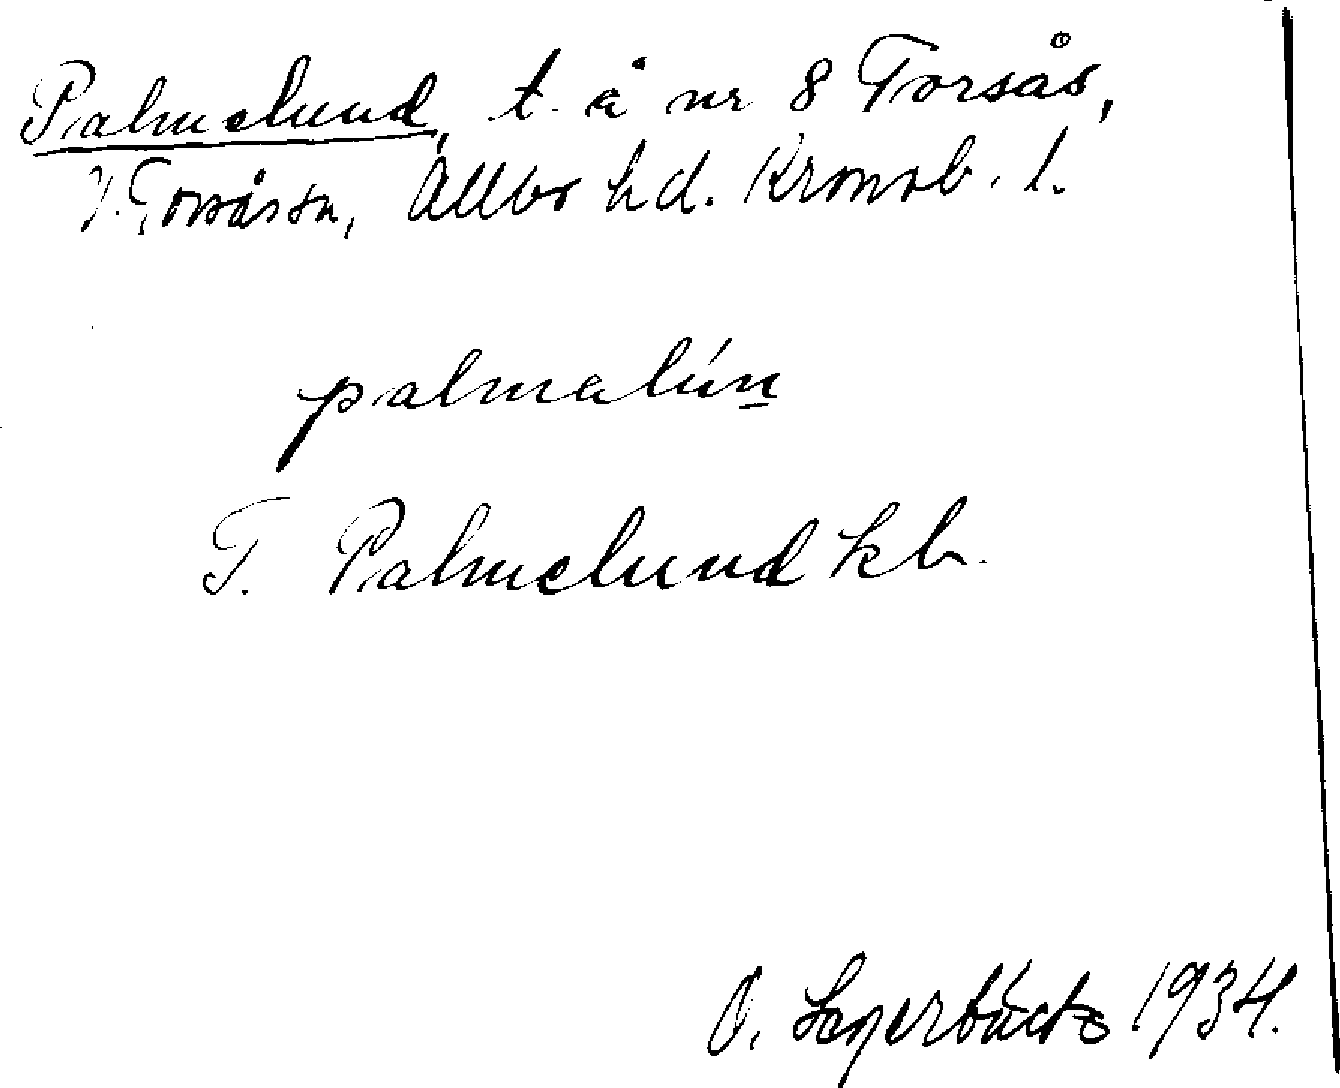 Palmelund, t. å nr 8 Torsås,
V. Torsås sn, Allbo hd. Kronob. l.
palmalún̲
T. Palmelund kb.
O. 1934.